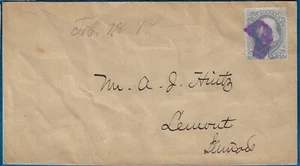 Feb. 28
Mr. A. J. Hintz
Lemont
Illinois